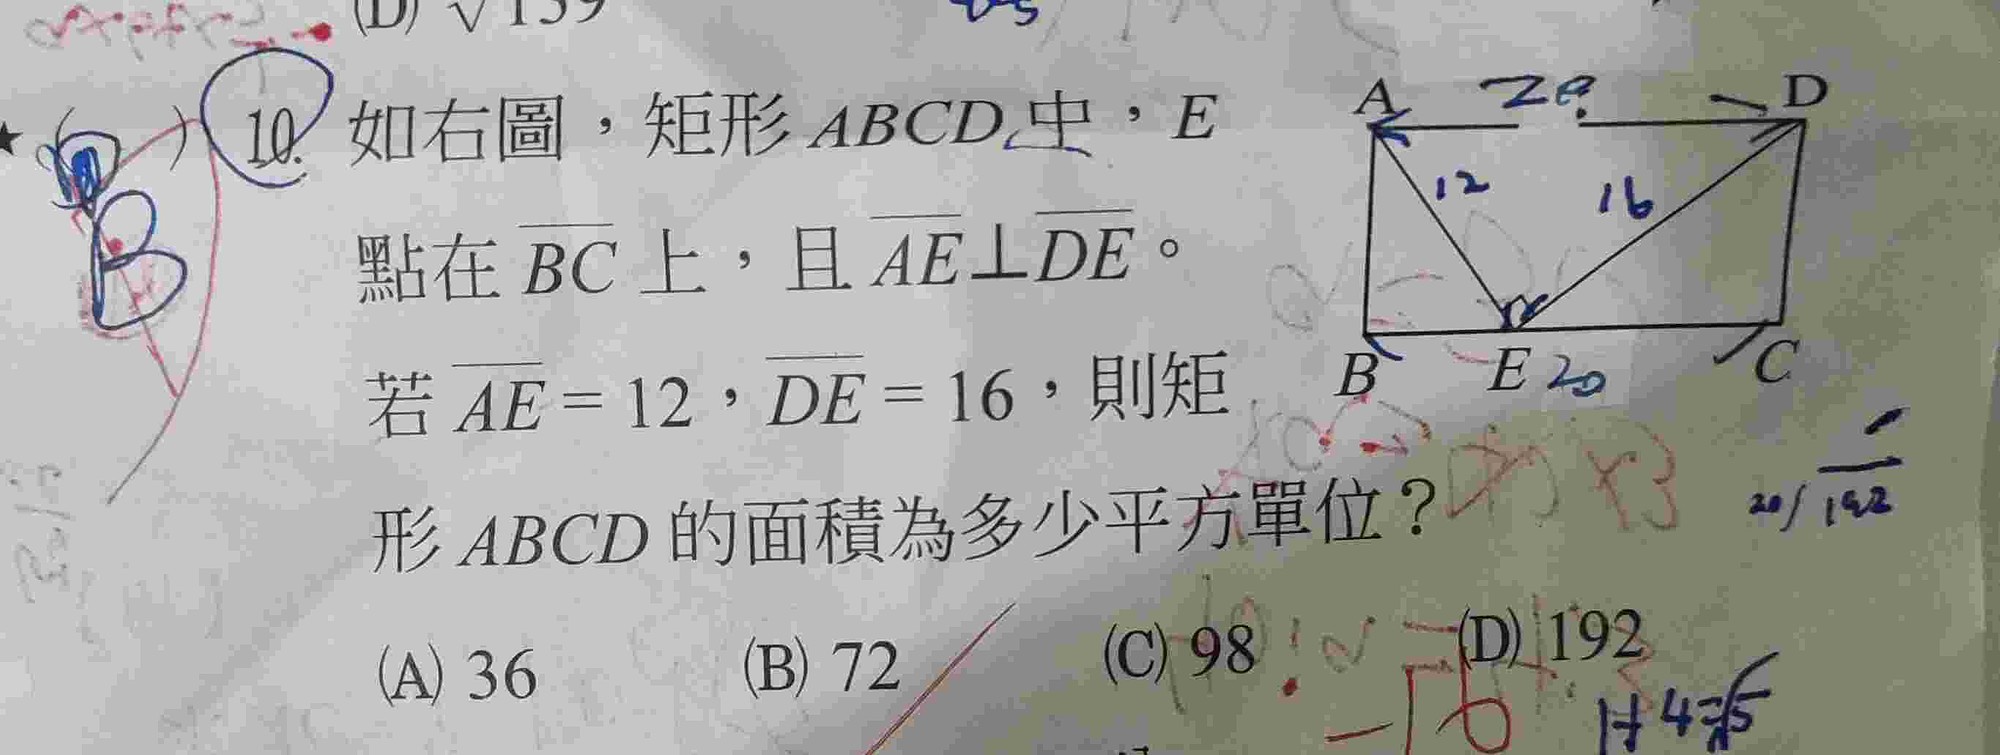 (D) √139
10. 如右圖，矩形 ABCD 中，E
點在 BC 上，且 AE⊥DE。
若 AE = 12，DE = 16，則矩
形 ABCD 的面積為多少平方單位？
(A) 36 (B) 72 (C) 98 (D) 192
B
A D
12 16
B E 20 C
20/192
1+4=√5